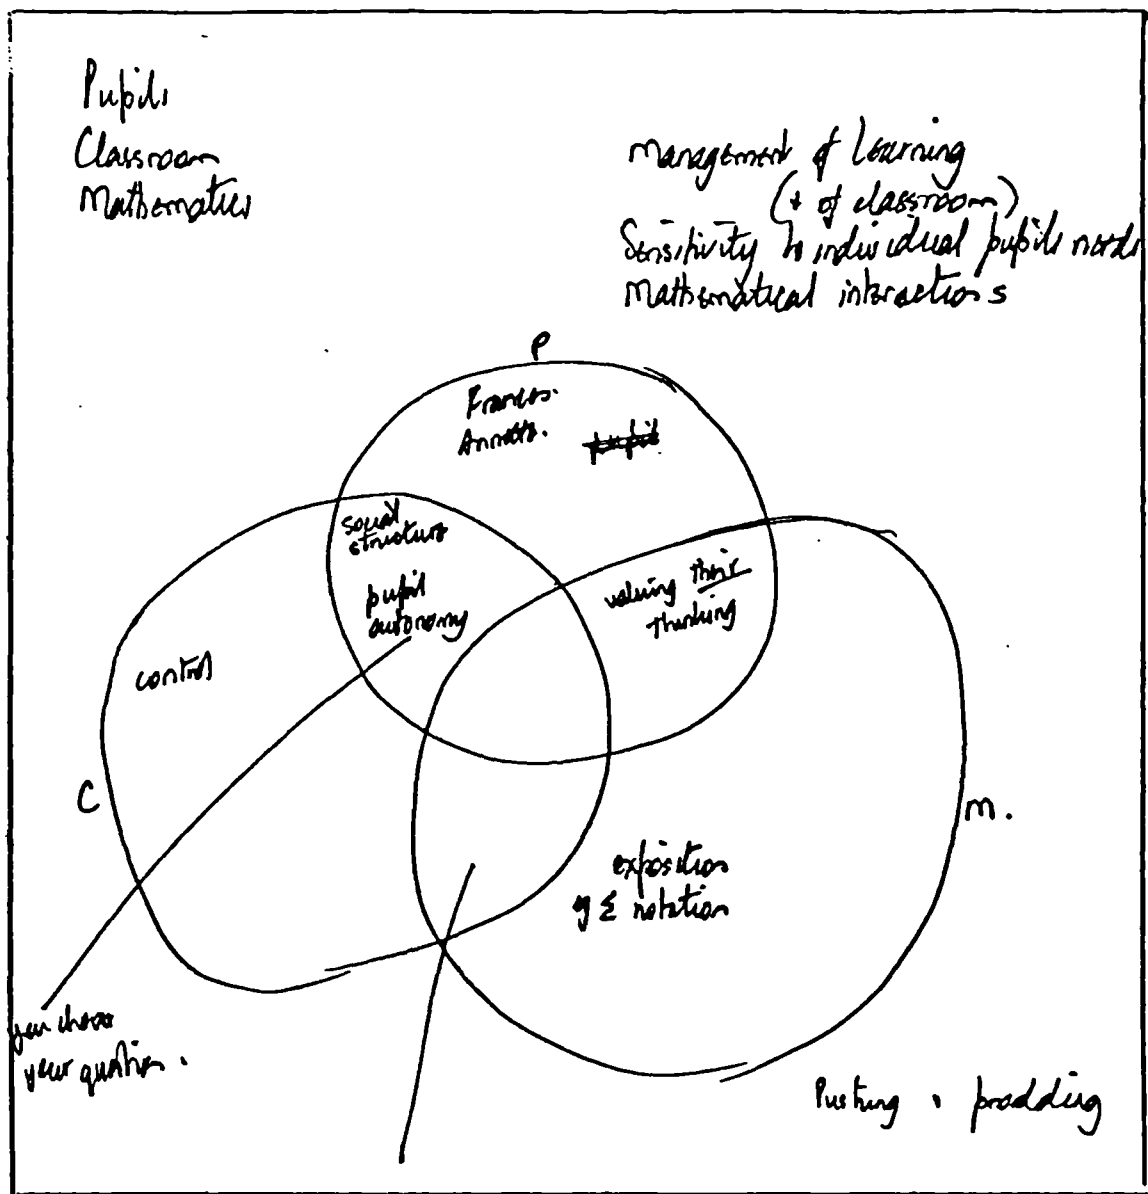 Pupils
Classroom
Mathematics
Management of Learning
(+ of classroom)
Sensitivity to individual pupils needs
Mathematical interactions
P
Frances.
Annette.
pupil
social
structure
pupil
autonomy
valuing their
thinking
control
C
M.
exposition
eg Σ notation
you choose
your question.
Pushing , prodding